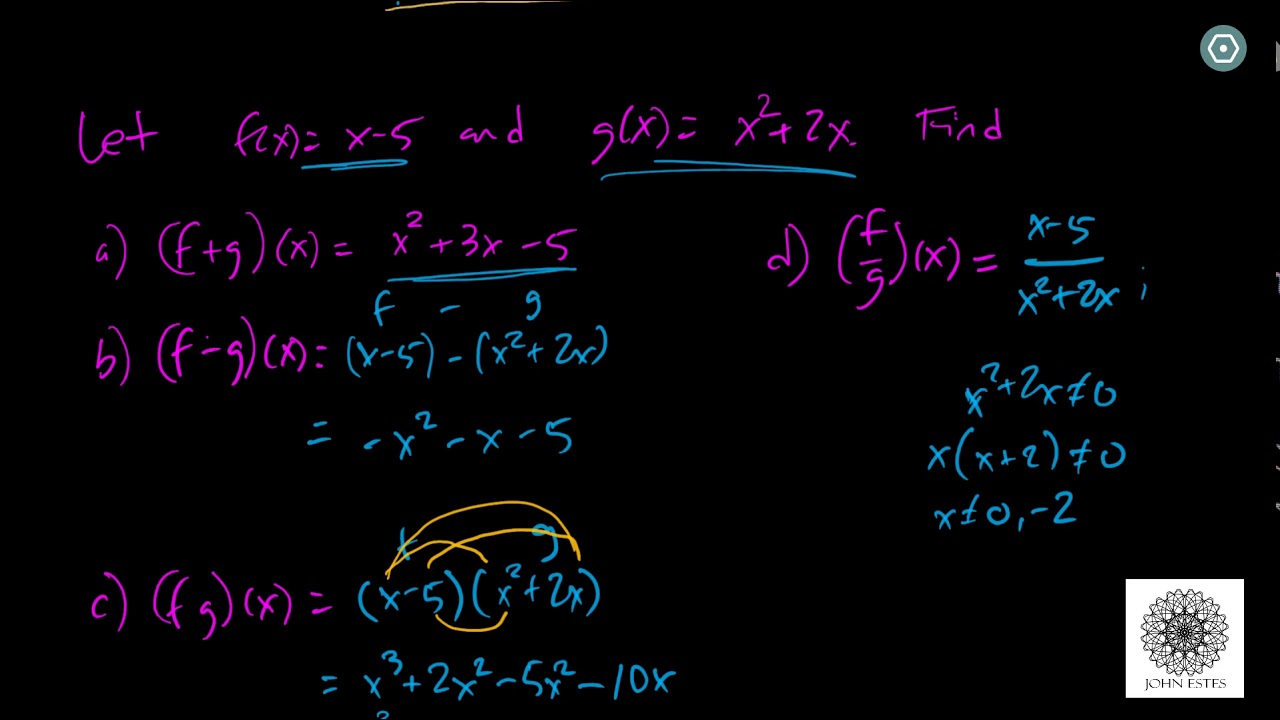 Let f(x) = x-5 and g(x) = x²+2x. Find
a) (f+g)(x) = x²+3x-5
f - g
b) (f-g)(x) = (x-5)-(x²+2x)
= -x²-x-5
f g
c) (fg)(x) = (x-5)(x²+2x)
= x³+2x²-5x²-10x
d) (f/g)(x) = x-5 / x²+2x ;
x²+2x≠0
x(x+2)≠0
x≠0,-2
JOHN ESTES